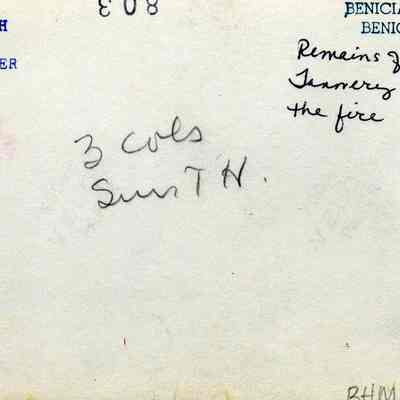 803
BENICIA
BENIC
H
ER
Remains of
Tannery
the fire
3 cols
Sun T H.
BHM